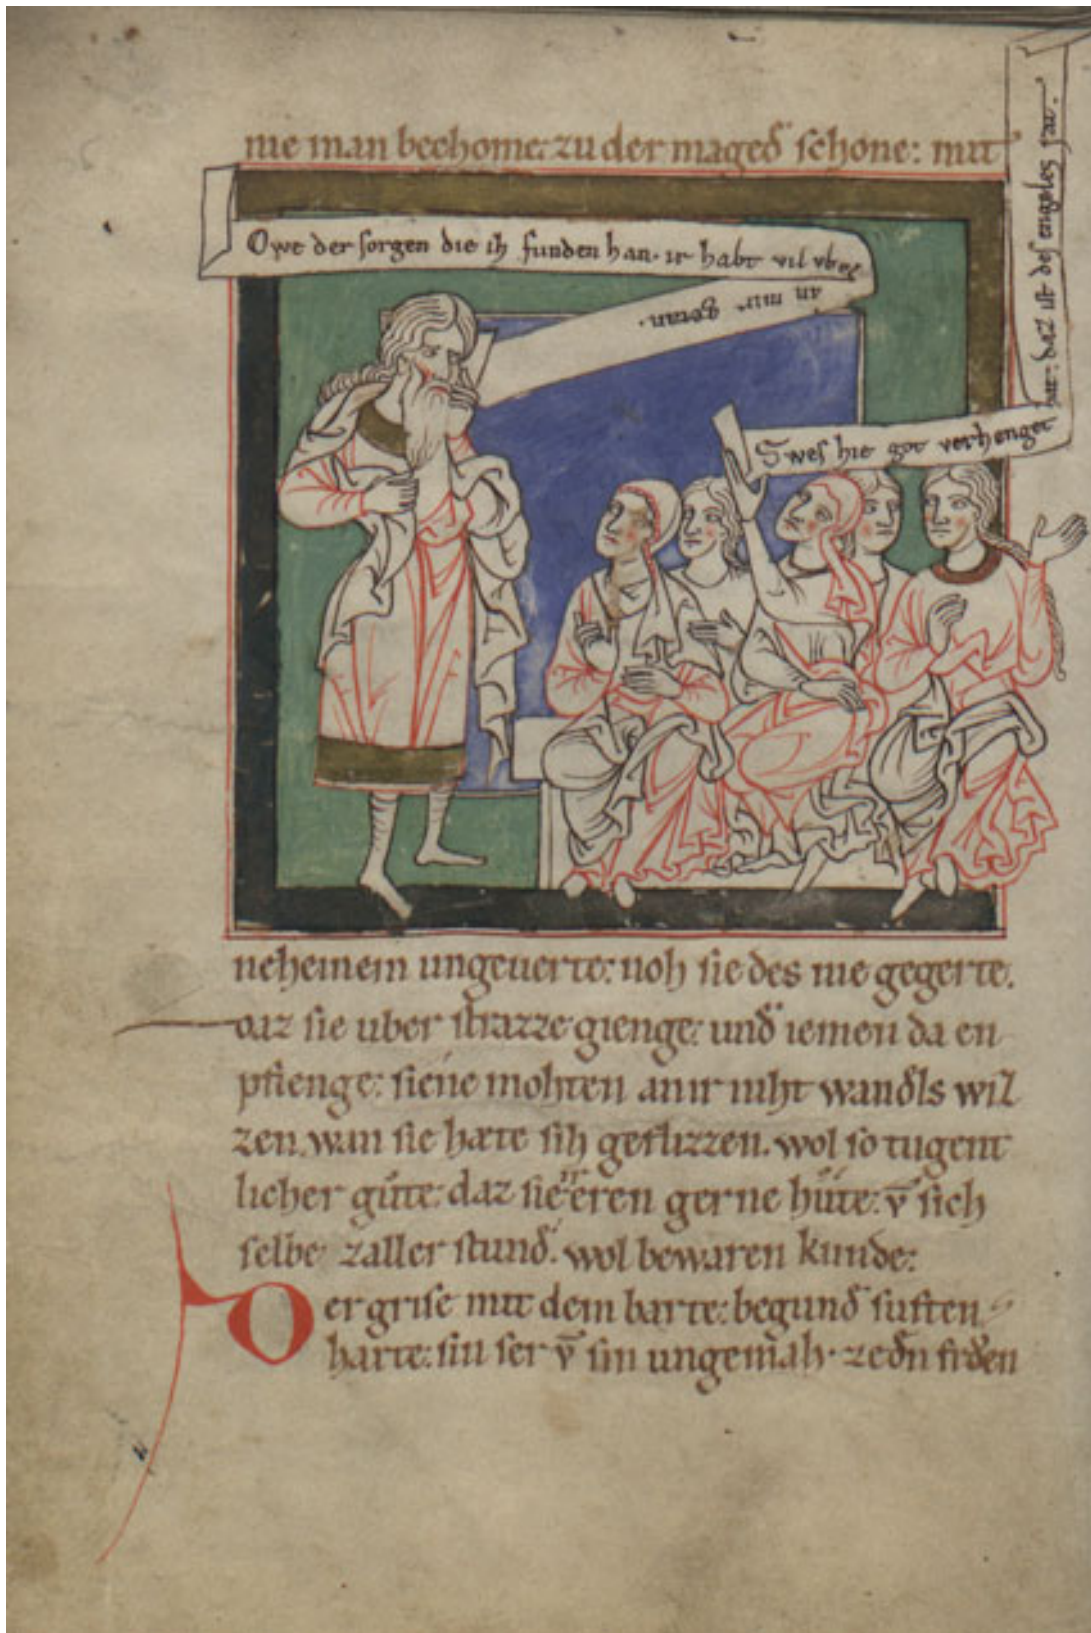 nie man bechome: zu der maged schone: mit
Owe der sorgen die ih funden han. ir habt vil vbel
an mir getan.
Swes hie got verhenget
hat: daz ist des engeles rat.
neheinem ungeuerte: noh sie des nie gegerte.
daz sie uber strazze gienge: und iemen da en
pfienge: siene mohten an ir niht wandls wiz
zen. wan sie hæte sih geflizzen. wol so tugent
licher gůte: daz sie ir eren gerne hůte: v̄ sich
selbe zaller stund. wol bewaren kunde:
Der grise mit dem barte: begund suften
harte: sin ser v̄ sin ungemah. zedn frden